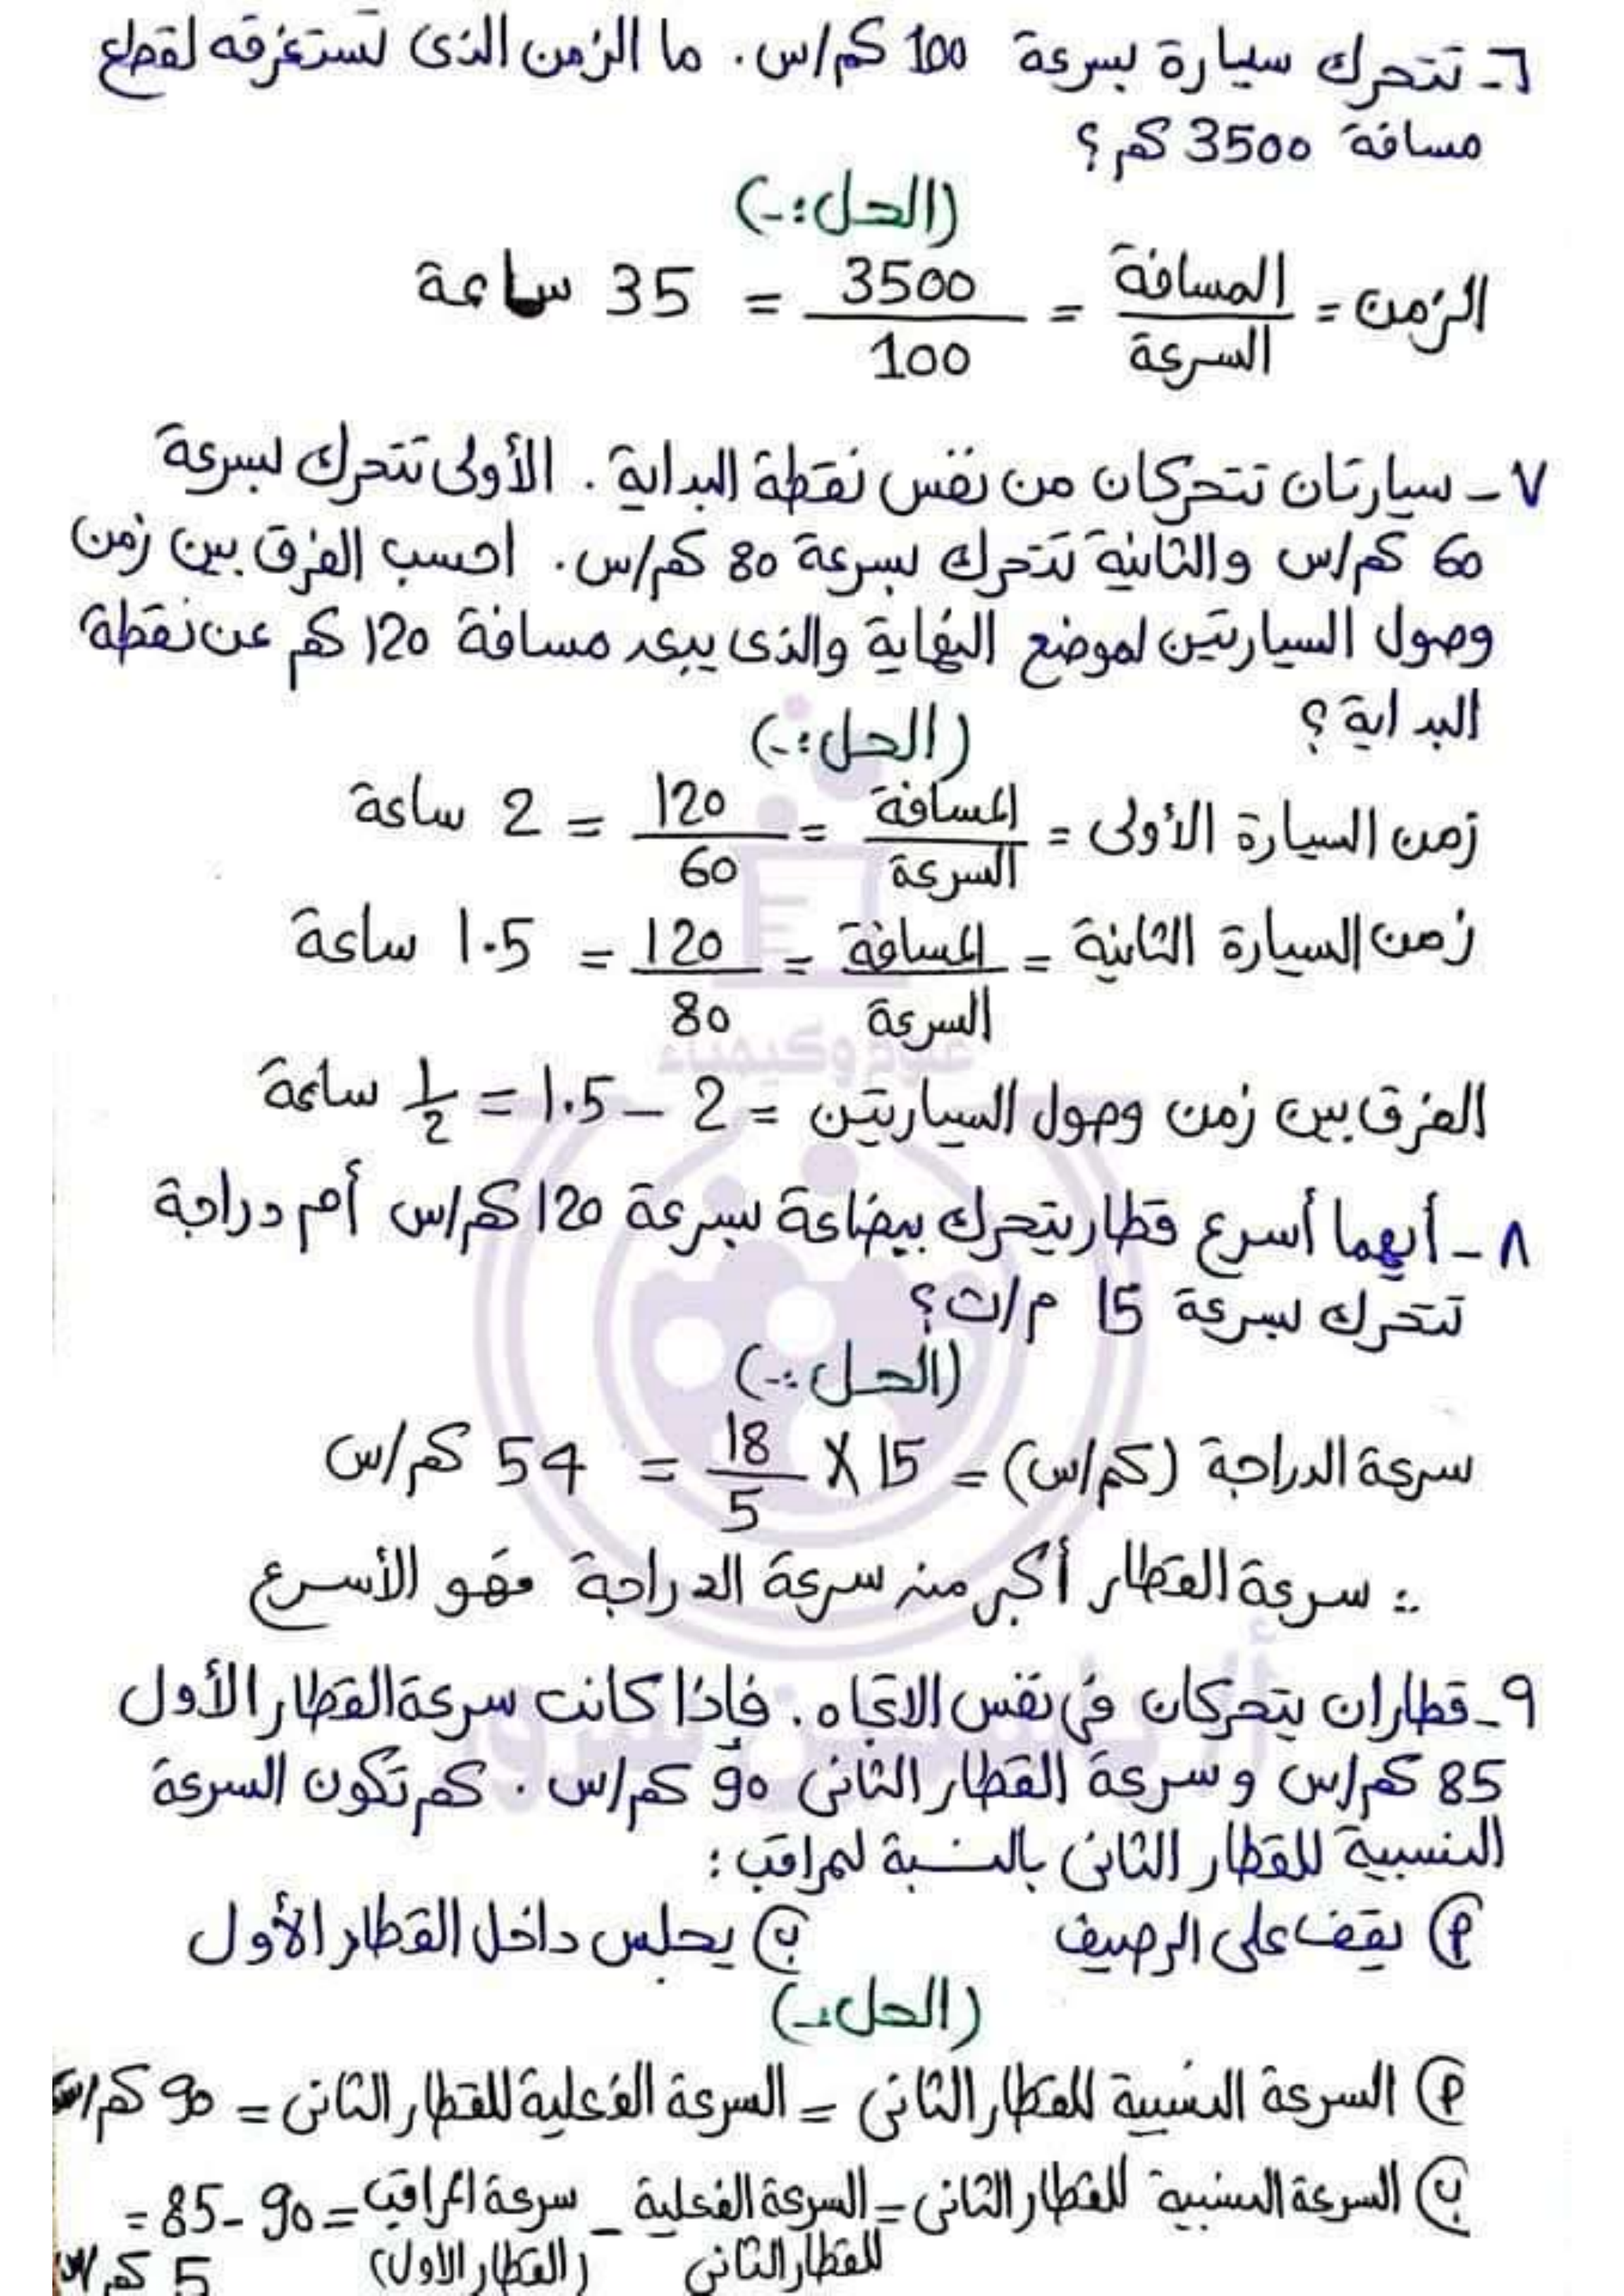 ٦- تتحرك سيارة بسرعة 100 كم/س. ما الزمن الذى تستغرقه لقطع
مسافة 3500 كم؟
(الحل:-)
الزمن = المسافة / السرعة = 3500 / 100 = 35 ساعة
٧- سيارتان تتحركان من نفس نقطة البداية. الأولى تتحرك بسرعة
60 كم/س والثانية تتحرك بسرعة 80 كم/س. احسب الفرق بين زمن
وصول السيارتين لموضع النهاية والذى يبعد مسافة 120 كم عن نقطة
البداية؟
(الحل:-)
زمن السيارة الأولى = المسافة / السرعة = 120 / 60 = 2 ساعة
زمن السيارة الثانية = المسافة / السرعة = 120 / 80 = 1.5 ساعة
علوم وكيمياء
الفرق بين زمن وصول السيارتين = 2 - 1.5 = 1/2 ساعة
٨- أيهما أسرع قطار يتحرك ببضاعة بسرعة 120 كم/س أم دراجة
تتحرك بسرعة 15 م/ث؟
(الحل:-)
سرعة الدراجة (كم/س) = 15 X 18 / 5 = 54 كم/س
∴ سرعة القطار أكبر من سرعة الدراجة فهو الأسرع
٩- قطاران يتحركان في نفس الاتجاه. فإذا كانت سرعة القطار الأول
85 كم/س وسرعة القطار الثانى 90 كم/س. كم تكون السرعة
النسبية للقطار الثانى بالنسبة لمراقب:
أ يقف على الرصيف ب يجلس داخل القطار الأول
(الحل:-)
أ السرعة النسبية للقطار الثانى = السرعة الفعلية للقطار الثانى = 90 كم/س
ب السرعة النسبية للقطار الثانى = السرعة الفعلية - سرعة المراقب = 90 - 85 =
للقطار الثانى (القطار الأول) 5 كم/س